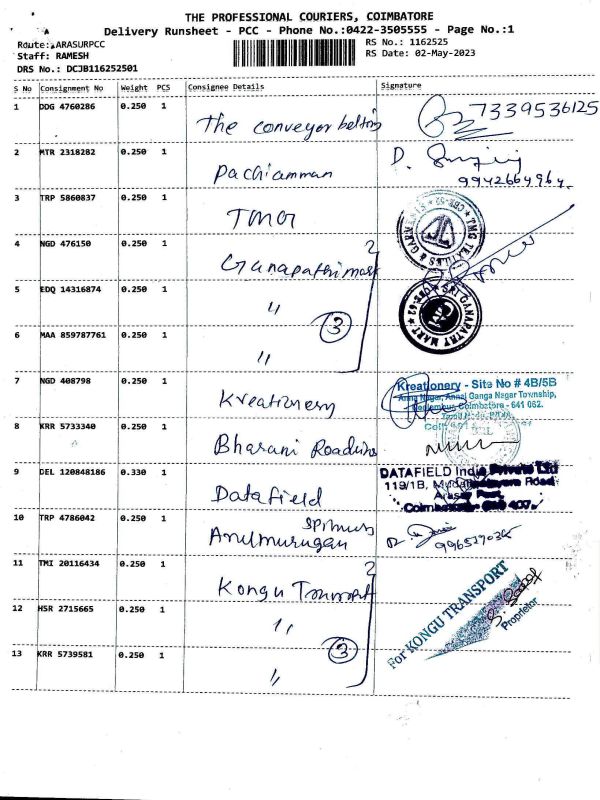 THE PROFESSIONAL COURIERS, COIMBATORE
Delivery Runsheet - PCC - Phone No.:0422-3505555 - Page No.:1
Route: ARASURPCC
RS No.: 1162525
Staff: RAMESH
RS Date: 02-May-2023
DRS No.: DCJB116252501
S No Consignment No Weight PCS Consignee Details Signature
1 DDG 4760286 0.250 1 The conveyor belting 7339536125
2 MTR 2318282 0.250 1 Pachiamman D.
9942664964
3 TRP 5860837 0.250 1 TMG
TMG TEXTILES & GARMENTS CBE-62
4 NGD 476150 0.250 1 Ganapathi mart
5 EDQ 14316874 0.250 1 "
SRI GANAPATHY MART CBE-62
3
6 MAA 859787761 0.250 1 "
7 NGD 408798 0.250 1 Kreationery
Kreationery - Site No # 4B/5B
Anna Nagar, Annai Ganga Nagar Township,
Coimbatore - 641 062.
Tamil Nadu, INDIA
8 KRR 5733340 0.250 1 Bharani Roadlines
9 DEL 120848186 0.330 1 Datafield
DATAFIELD India Private Ltd
119/1B, Road
Arasur Post,
Coimbatore 407.
10 TRP 4786042 0.250 1 Arulmurugan
11 TMI 20116434 0.250 1 Kongu Transport
12 HSR 2715665 0.250 1 "
3
For KONGU TRANSPORT
Proprietor
13 KRR 5739581 0.250 1 "